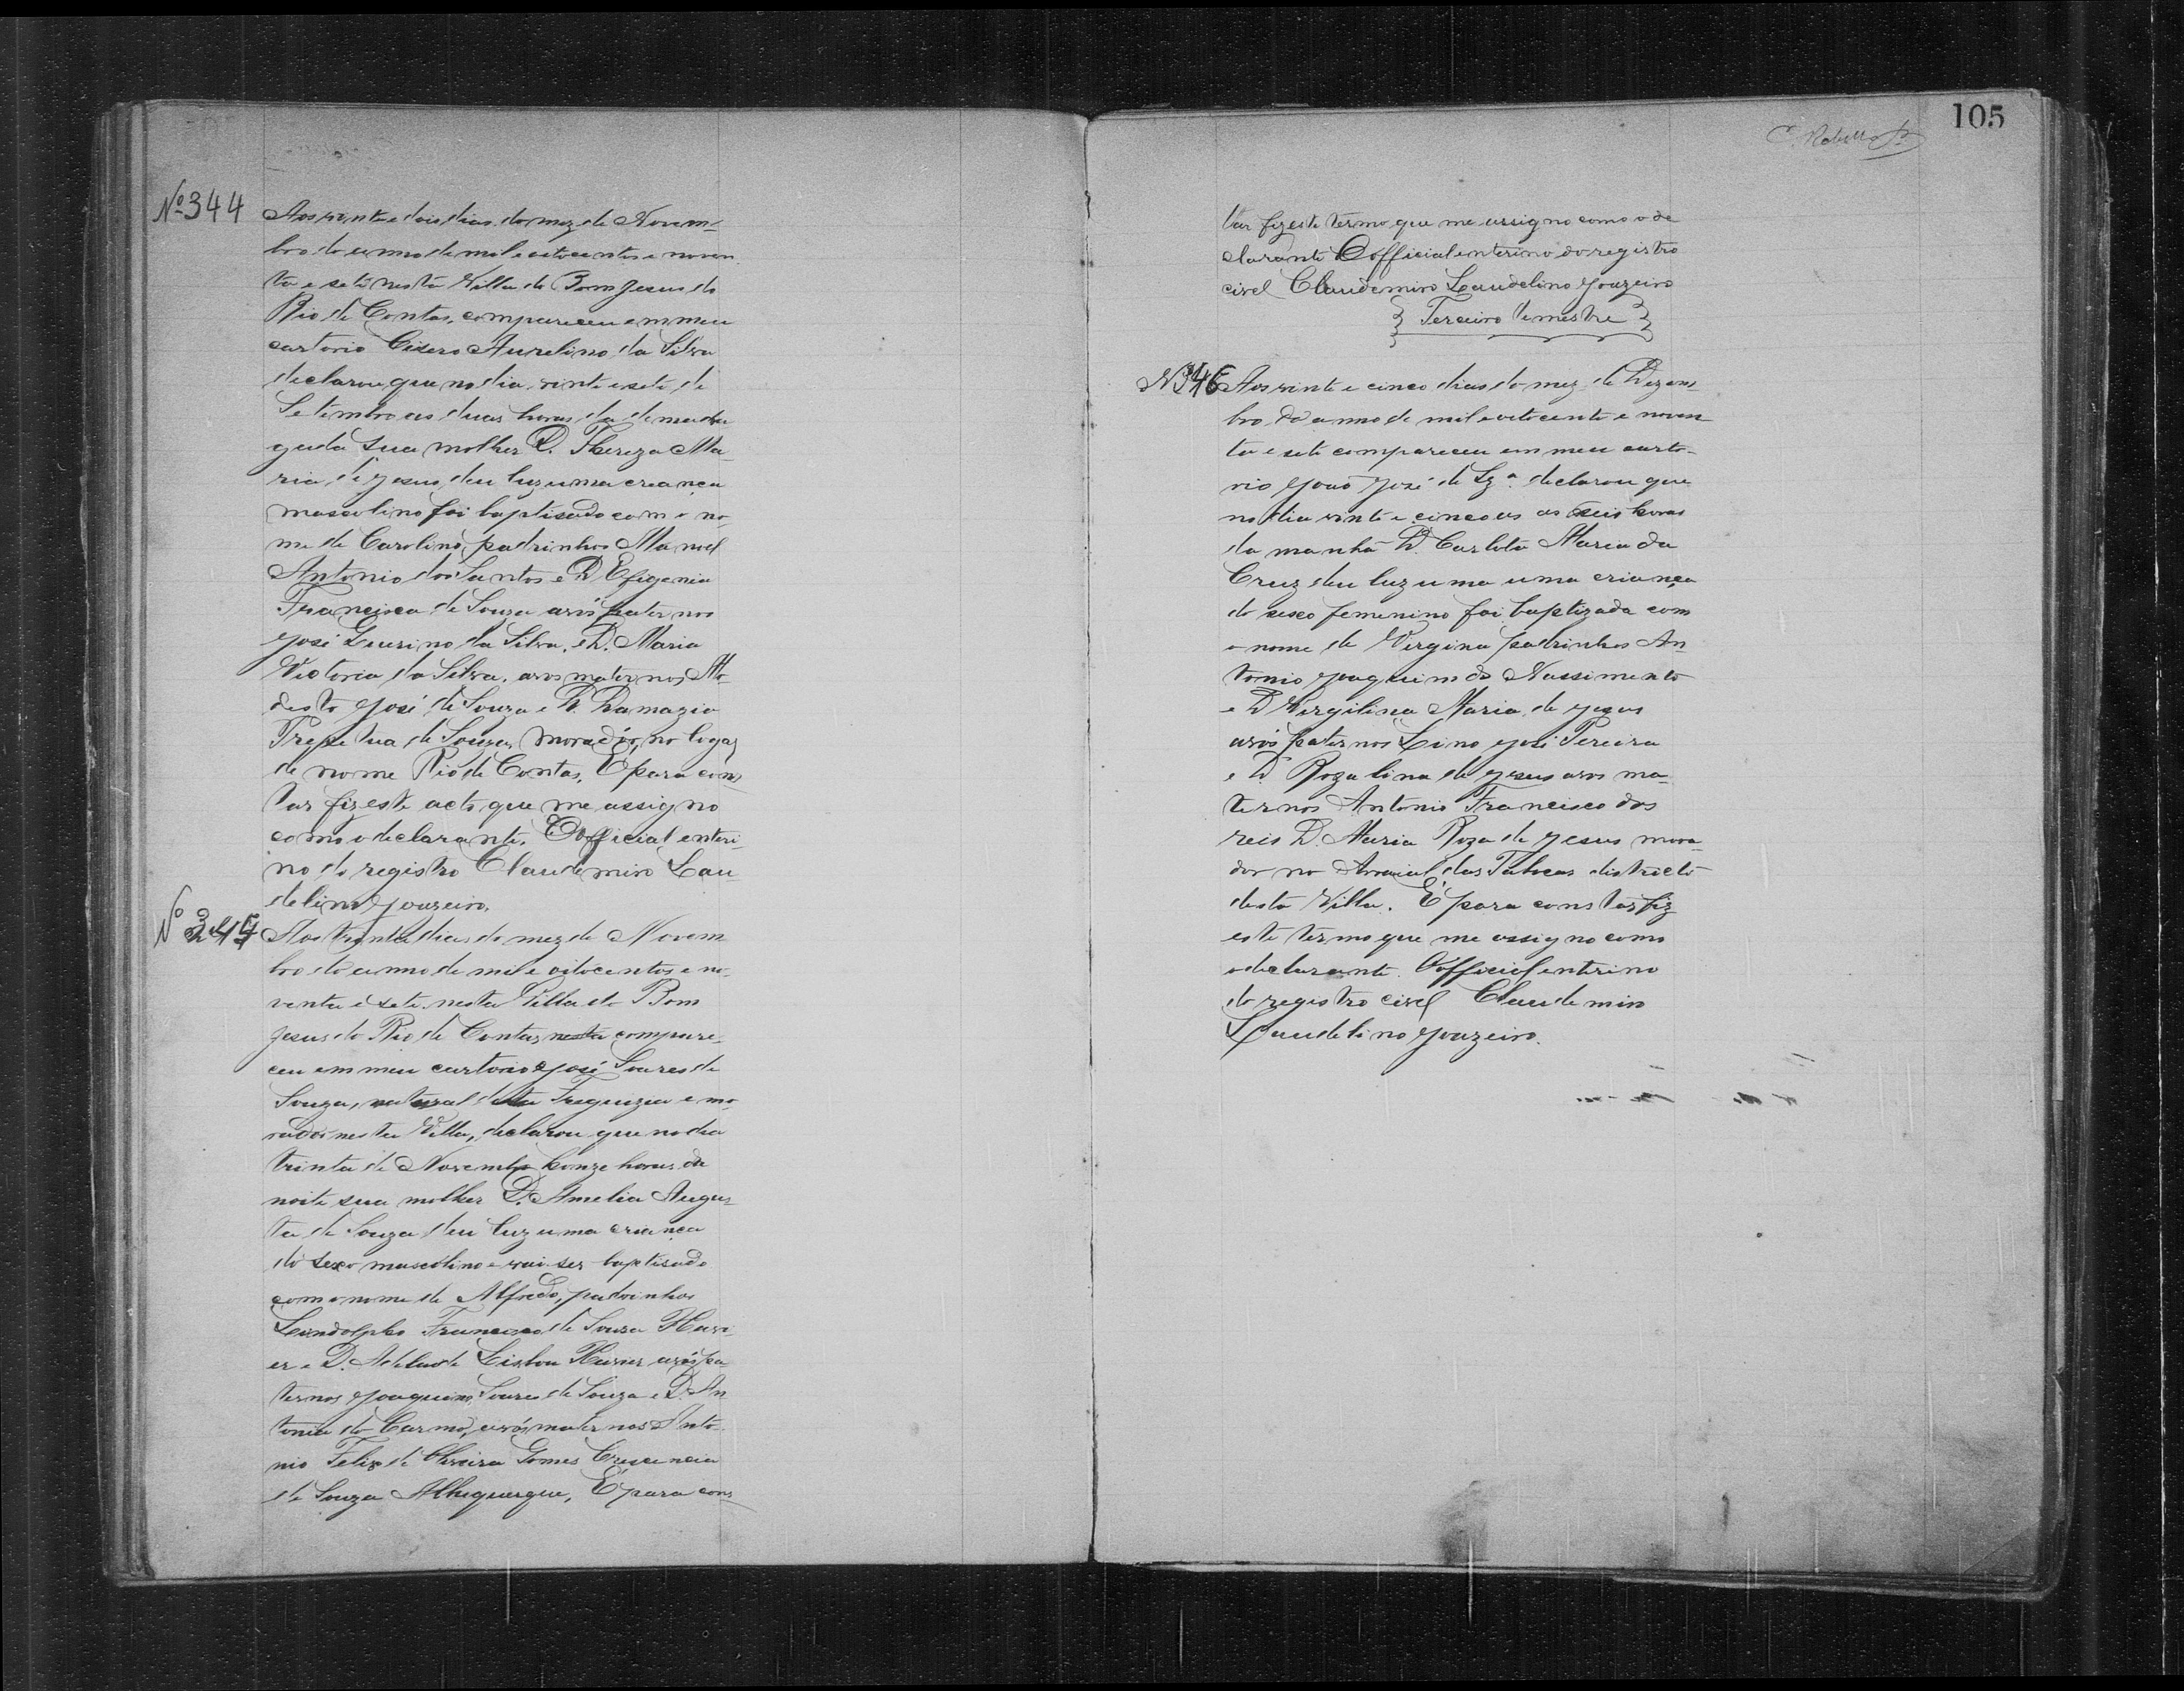 Nº 344 Aos vinte e dois dias do mez de Novem-
bro do anno de mil e oitocentos e noven
ta e sete nesta Villa do Bom Jesus do
Rio de Contas, compareceu em meu
cartorio Cisero Aurelino da Silva
declarou que no dia vinte e sete de
Setembro as duas horas da madru
gada sua molher D. Thereza Ma-
ria de Jesus deu luz uma creança
mascolino foi baptisado com o no-
me de Carolino, padrinhos Manoel
Antonio dos Santos e D Efigenia
Francisca de Souza avós paternos
José da Silva, e D. Maria
Victoria da Silva, avos maternos Mo-
desto José de Souza e D. Damazia
Prepetua de Souza, morador no logar
de nome Rio de Contas, E para cons
tar fiz este acto que me assigno
como o declarante. O official enteri-
no do registro Claudemiro Lau-
delino Jouzeiro.
Nº 345 Aos trinta dias do mez de Novem
bro do anno de mil e oitocentos e no-
venta e sete nesta Villa do Bom
Jesus do Rio de Contas nesta compare-
ceu em meu cartorio José Soares de
Souza, natural desta Freguezia e mo-
rador nesta Villa, declarou que no dia
trinta de Novembro honze horas da
noite sua molher D. Amelia Augus-
ta de Souza deu luz uma creança
do sexo mascolino e vai ser baptisado
com o nome de Alfredo, padrinhos
Lindolpho Francisco de Souza Xavi-
er e D. Adelaide Lisboa Xavier avós pa-
ternos Joaquim Soares de Souza e D. An
tonia do Carmo, avós maternos Anto-
nio Felix de Oliveira Gomes Crescencia
de Souza Albuquerque, E para cons
105
tar fiz este termo que me assigno como o de
clarante O official enterino do registro
civel Claudemiro Laudelino Jouzeiro
{ Terceiro temestre }
Nº 346 Aos vinte e cinco dias do mez de Dezem
bro do anno de mil e oitocento e noven
ta e sete compareceu em meu carto-
rio João José de Sza. declarou que
no dia vinte e cinco as as seis horas
da manhã D. Carlota Maria da
Cruz deu luz uma uma criança
do sexo femenino foi baptizada com
o nome de Virgina padrinhos An-
tonio Joaquim do Nassimento
e D Virgilina Maria de Jesus
avós paternos Lino José Pereira
e D Rozalina de Jesus avos ma-
ternos Antonio Francisco dos
reis D. Maria Roza de Jesus mora-
dor no Arraial das Tabocas districto
desta Villa. E para constar fiz
este termo que me assigno como
o declarante. O official enterino
do registro civel Claudemiro
Laudelino Jouzeiro.